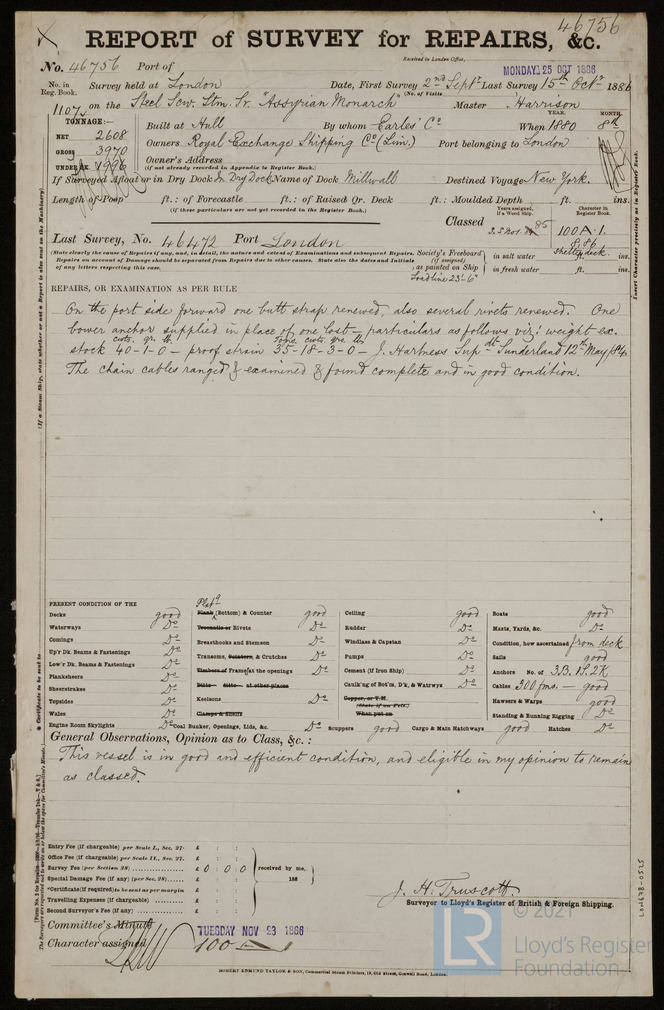 46756
REPORT of SURVEY for REPAIRS, &c.
Received in London Office,
No. 46756 Port of
MONDAY 25 OCT 1886
No. in Reg. Book.
Survey held at London Date, First Survey 2nd Sept. Last Survey 15th Octr. 1886
(No. of Visits
1107 on the Steel Scw. Stm. Sr. "Assyrian Monarch" Master Harrison
TONNAGE:—
NET 2608
GROSS 3970
UNDER DK.
Built at Hull By whom Earles' Co When 1880 8th
YEAR. MONTH.
Owners Royal Exchange Shipping Co (Lim.) Port belonging to London
Owner's Address
(if not already recorded in Appendix to Register Book.)
If Surveyed Afloat or in Dry Dock In Dry Dock Name of Dock Millwall Destined Voyage New York.
Length of Poop ft.: of Forecastle ft.: of Raised Qr. Deck ft.: Moulded Depth ft. ins.
(if these particulars are not yet recorded in the Register Book.)
Classed
Years assigned, if a Wood Ship.
Character in Register Book.
85
100 A.1.
8,86
shelter deck.
Last Survey, No. 46472 Port London
(State clearly the cause of Repairs, if any, and, in detail, the nature and extent of Examinations and subsequent Repairs.
Repairs on account of Damage should be separated from Repairs due to other causes. State also the dates and Initials
of any letters respecting this case.
Society's Freeboard (if assigned) as painted on Ship
in salt water ft. ins.
in fresh water ft. ins.
Loadline 23'-6"
REPAIRS, OR EXAMINATION AS PER RULE
On the port side forward one butt strap renewed, also several rivets renewed. One
bower anchor supplied in place of one lost — particulars as follows viz: weight ex.
stock 40-1-0 — proof strain 35-18-3-0 — J. Hartness Supdt. Sunderland 12th May/84.
The chain cables ranged & examined & found complete and in good condition.
PRESENT CONDITION OF THE
Decks good
Waterways Do
Comings Do
Up'r Dk. Beams & Fastenings Do
Low'r Dk. Beams & Fastenings Do
Planksheers Do
Sheerstrakes Do
Topsides Do
Wales Do
Engine Room Skylights Do
Platg
Plank (Bottom) & Counter good
Treenails or Rivets Do
Breasthooks and Stemson Do
Transoms, Pointers, & Crutches Do
Timbers of Frame at the openings Do
Ditto ditto at other places
Keelsons Do
Clamps & Shelfs
Coal Bunker, Openings, Lids, &c. Do
Ceiling good
Rudder Do
Windlass & Capstan Do
Pumps Do
Cement (if Iron Ship) Do
Caulk'ng of Bot'm, D'k, & Watrways Do
Copper, or Y.M.
(State if on Felt.)
When put on
Scuppers good Cargo & Main Hatchways good Hatches Do
Boats good
Masts, Yards, &c. Do
Condition, how ascertained from deck
Sails good
Anchors No. of 3B. 1S. 2K
Cables 300 fms. — good
Hawsers & Warps good
Standing & Running Rigging Do
General Observations, Opinion as to Class, &c. :
This vessel is in good and efficient condition, and eligible in my opinion to remain
as classed.
Entry Fee (if chargeable) per Scale I., Sec. 27. £ : :
Office Fee (if chargeable) per Scale II., Sec. 27. £ : :
Survey Fee (per Section 28) £ 0 : 0 : 0
Special Damage Fee (if any) (per Sec. 28) £ : :
*Certificate (if required) to be sent as per margin £ : :
Travelling Expenses (if chargeable) £ : :
Second Surveyor's Fee (if any) £ : :
received by me,
188
J. H. Truscott
Surveyor to Lloyd's Register of British & Foreign Shipping.
Committee's Minute TUESDAY NOV 23 1886
Character assigned 100 A
ROBERT EDMUND TAYLOR & SON, Commercial Steam Printers, 19, Old Street, Goswell Road, London.
LON678-0525
LR
© 2021
Lloyd's Register
Foundation